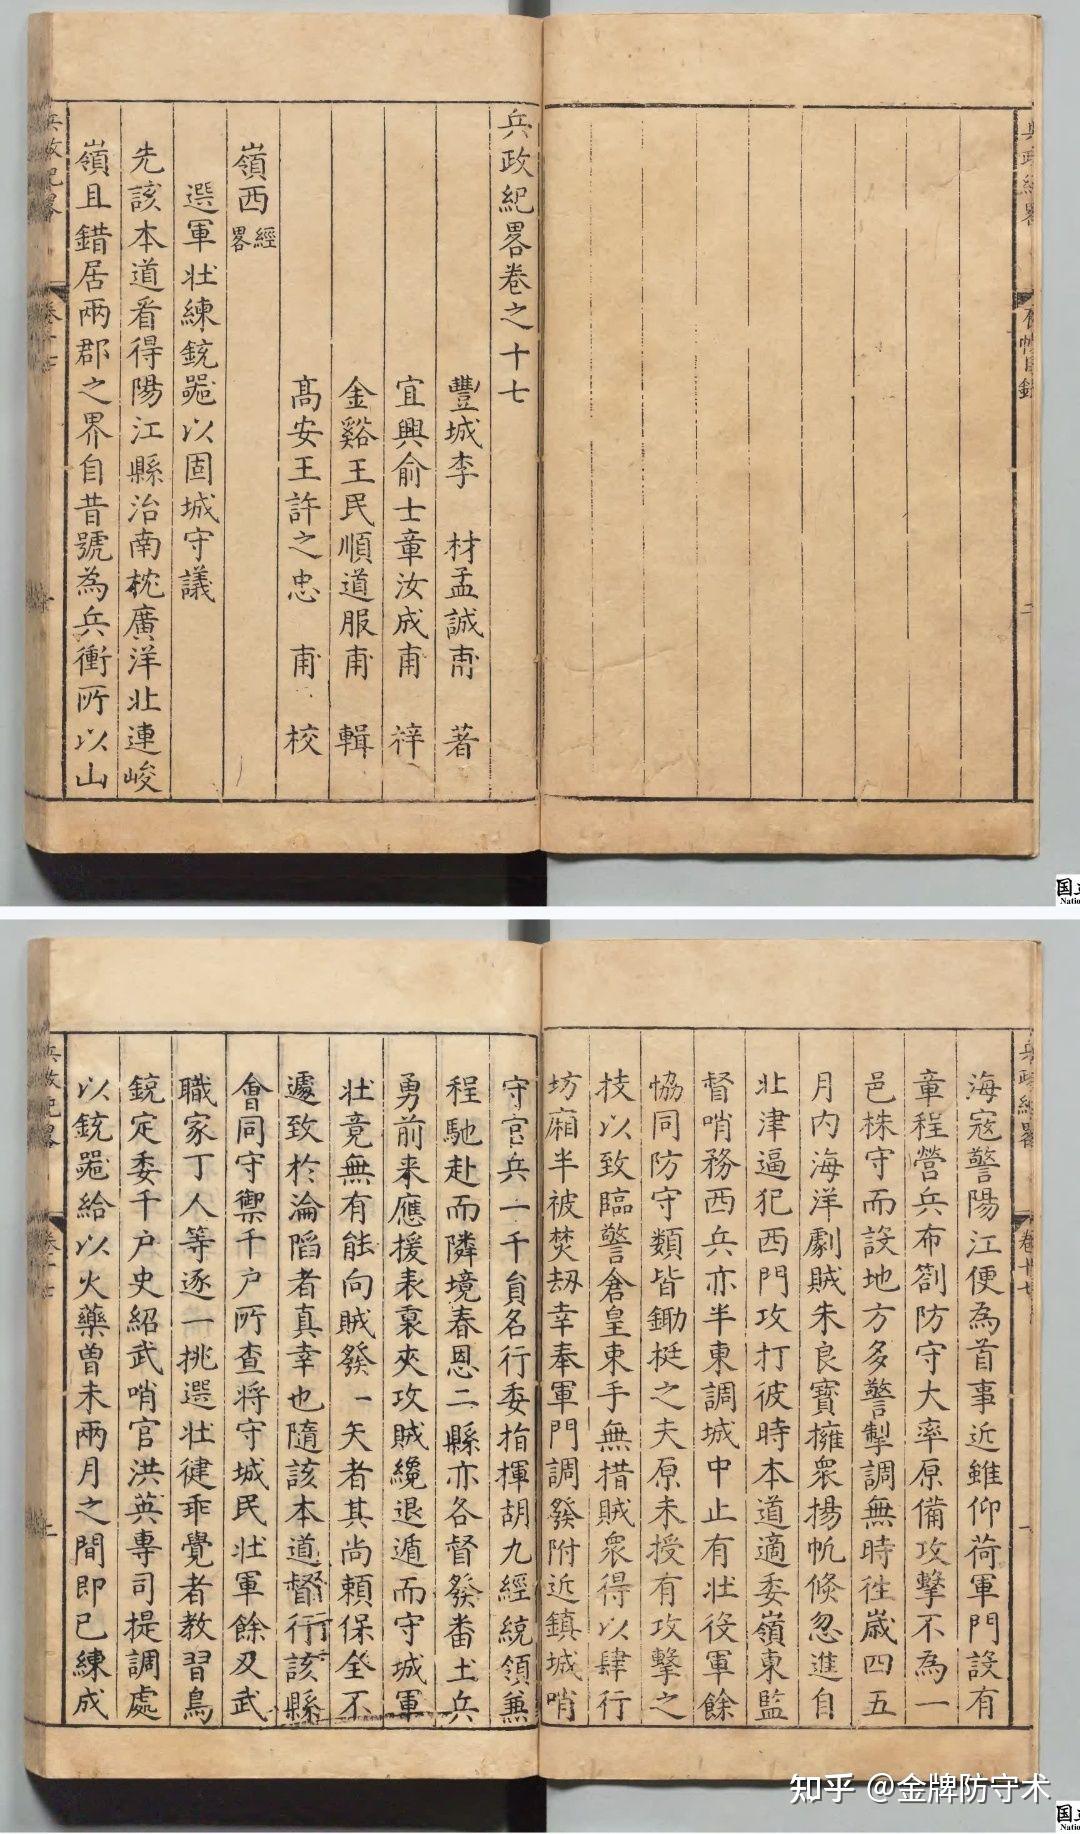 兵政紀畧卷之十七
豐城李 材孟誠甫 著
宜興俞士章汝成甫 梓
金谿王民順道服甫 輯
高安王許之忠 甫 校
嶺西經畧
選軍壯練銃噐以固城守議
先該本道看得陽江縣治南枕廣洋北連峻
嶺且錯居兩郡之界自昔號為兵衝所以山
海寇警陽江便為首事近雖仰荷軍門設有
章程營兵布劄防守大率原備攻擊不為一
邑株守而設地方多警掣調無時徃歲四五
月內海洋劇賊朱良寶擁衆揚帆倐忽進自
北津逼犯西門攻打彼時本道適委嶺東監
督哨務西兵亦半東調城中止有壯役軍餘
協同防守類皆鋤梃之夫原未授有攻擊之
技以致臨警倉皇束手無措賊衆得以肆行
坊廂半被焚刼幸奉軍門調發附近鎮城哨
守官兵一千員名行委指揮胡九經統領兼
程馳赴而隣境春恩二縣亦各督發畨土兵
勇前来應援表裏夾攻賊纔退遁而守城軍
壯竟無有能向賊發一矢者其尚頼保全不
遽致於淪䧟者真幸也隨該本道督行該縣
會同守禦千户所查将守城民壯軍餘及武
職家丁人等逐一挑選壯健乖覺者教習鳥
銃定委千户史紹武哨官洪英專司提調處
以銃噐給以火藥曾未兩月之間即已練成
兵政紀畧
卷十七
知乎 @金牌防守术
国立
Natio